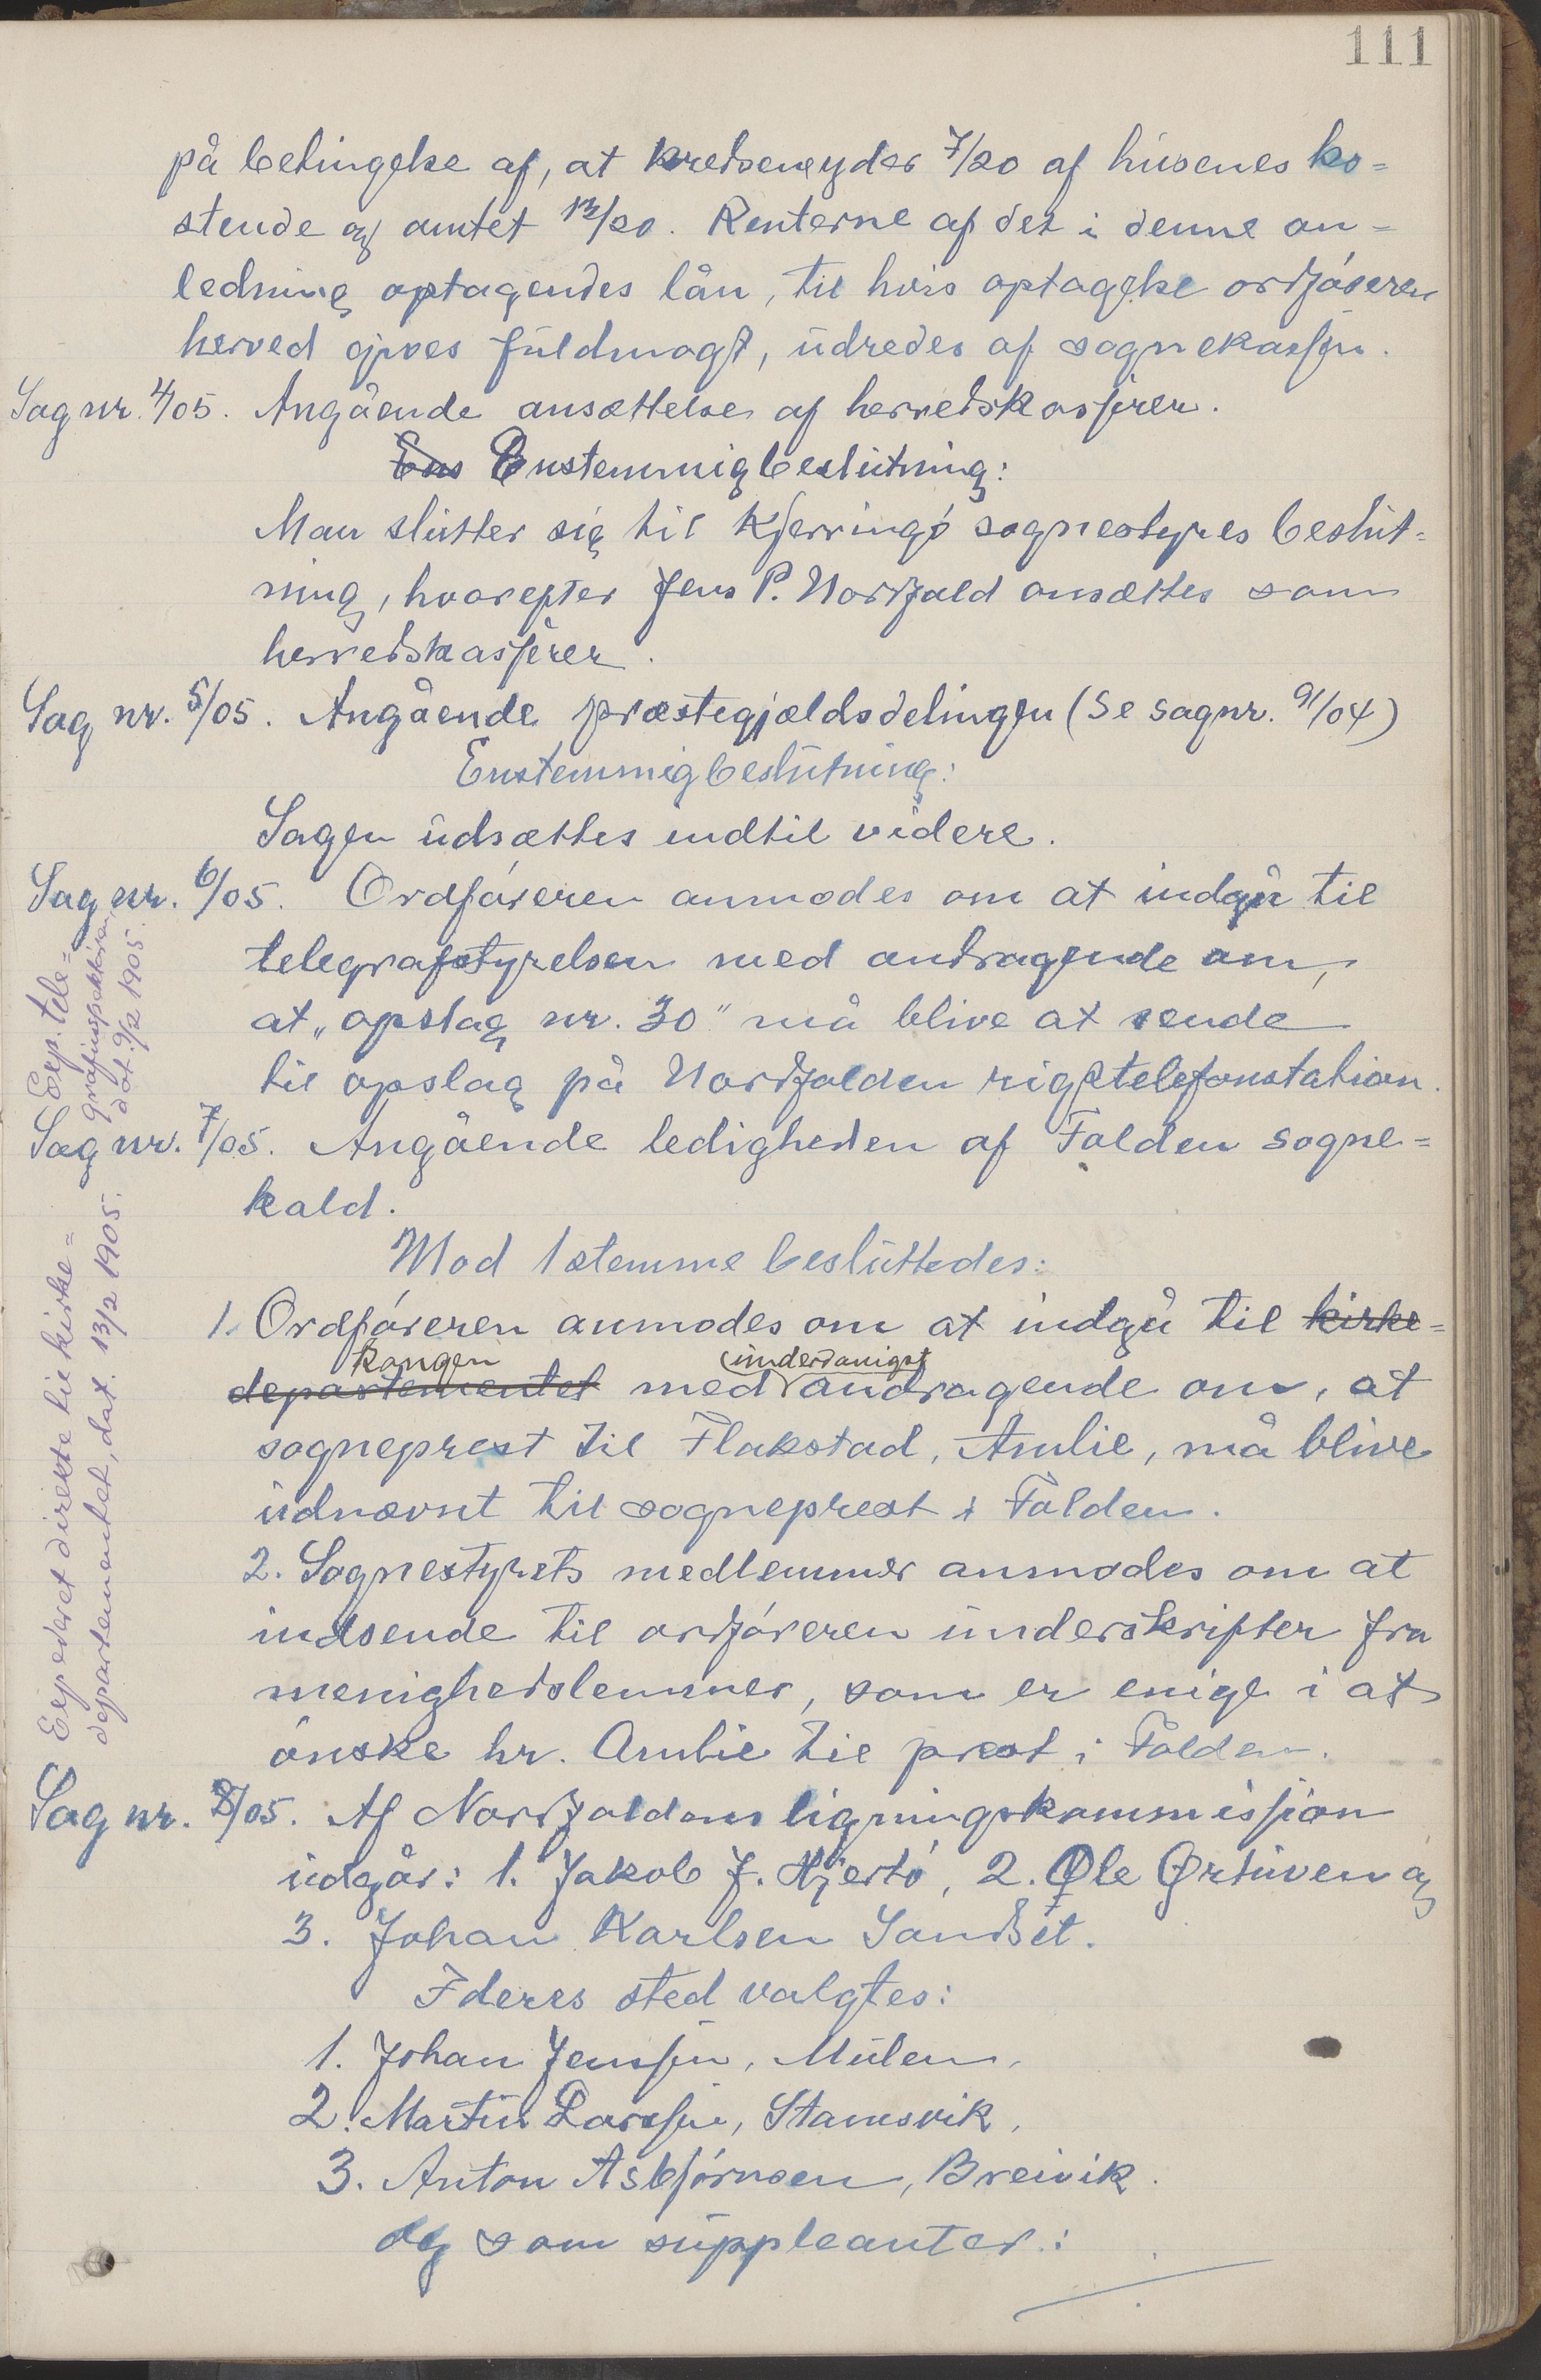 111
på betingelse af, at kredsene yder 7/20 af husenes ko=
stende og amtet 13/20. Renterne af det i denne an=
ledning optagendes lån, til hvis optagelse ordføreren
herved gives fuldmagt, udredes af sognekassen.
Sag nr. 4/05. Angående ansættelse af herredskasserer.
Ens Enstemmig beslutning:
Man slutter sig til Kjerringø sognestyres beslut=
ning, hvorefter Jens P. Nordfold ansættes som
herredskasserer.
Sag nr. 5/05. Angående præstegjældsdelingen (Se sag nr. 91/04)
Enstemmig beslutning:
Sagen udsættes indtil videre.
Sag nr. 6/05. Ordføreren anmodes om at indgå til
telegrafstyrelsen med andragende om,
at „opslag nr. 30" må blive at sende
til opslag på Nordfolden rigstelefonstation.
Exp. tele=
grafinspektøren
dat. 9/2 1905.
Sag nr. 7/05. Angående ledigheden af Folden sogne=
kald.
Mod 1 stemme besluttedes:
1. Ordføreren anmodes om at indgå til kirke=
kongen underdanigst
departementet med andragende om, at
sogneprest til Flakstad, Amlie, må blive
udnævnt til sogneprest i Folden.
2. Sognestyrets medlemmer anmodes om at
indsende til ordføreren underskrifter fra
menighedslemmer, som er enige i at
ønske hr. Amlie til prest i Folden.
Expederet direkte til kirke=
departementet, dat. 13/2 1905.
Sag nr. 8/05. Af Nordfoldens ligningskommission
udgår: 1. Jakob J. Hjertø, 2. Ole Ørtuven og
3. Johan Karlsen Sandset.
I deres sted valgtes:
1. Johan Jensen, Mulen,
2. Martin Larssen, Stamsvik,
3. Anton Asbjørnsen, Breivik.
Og som suppleanter: